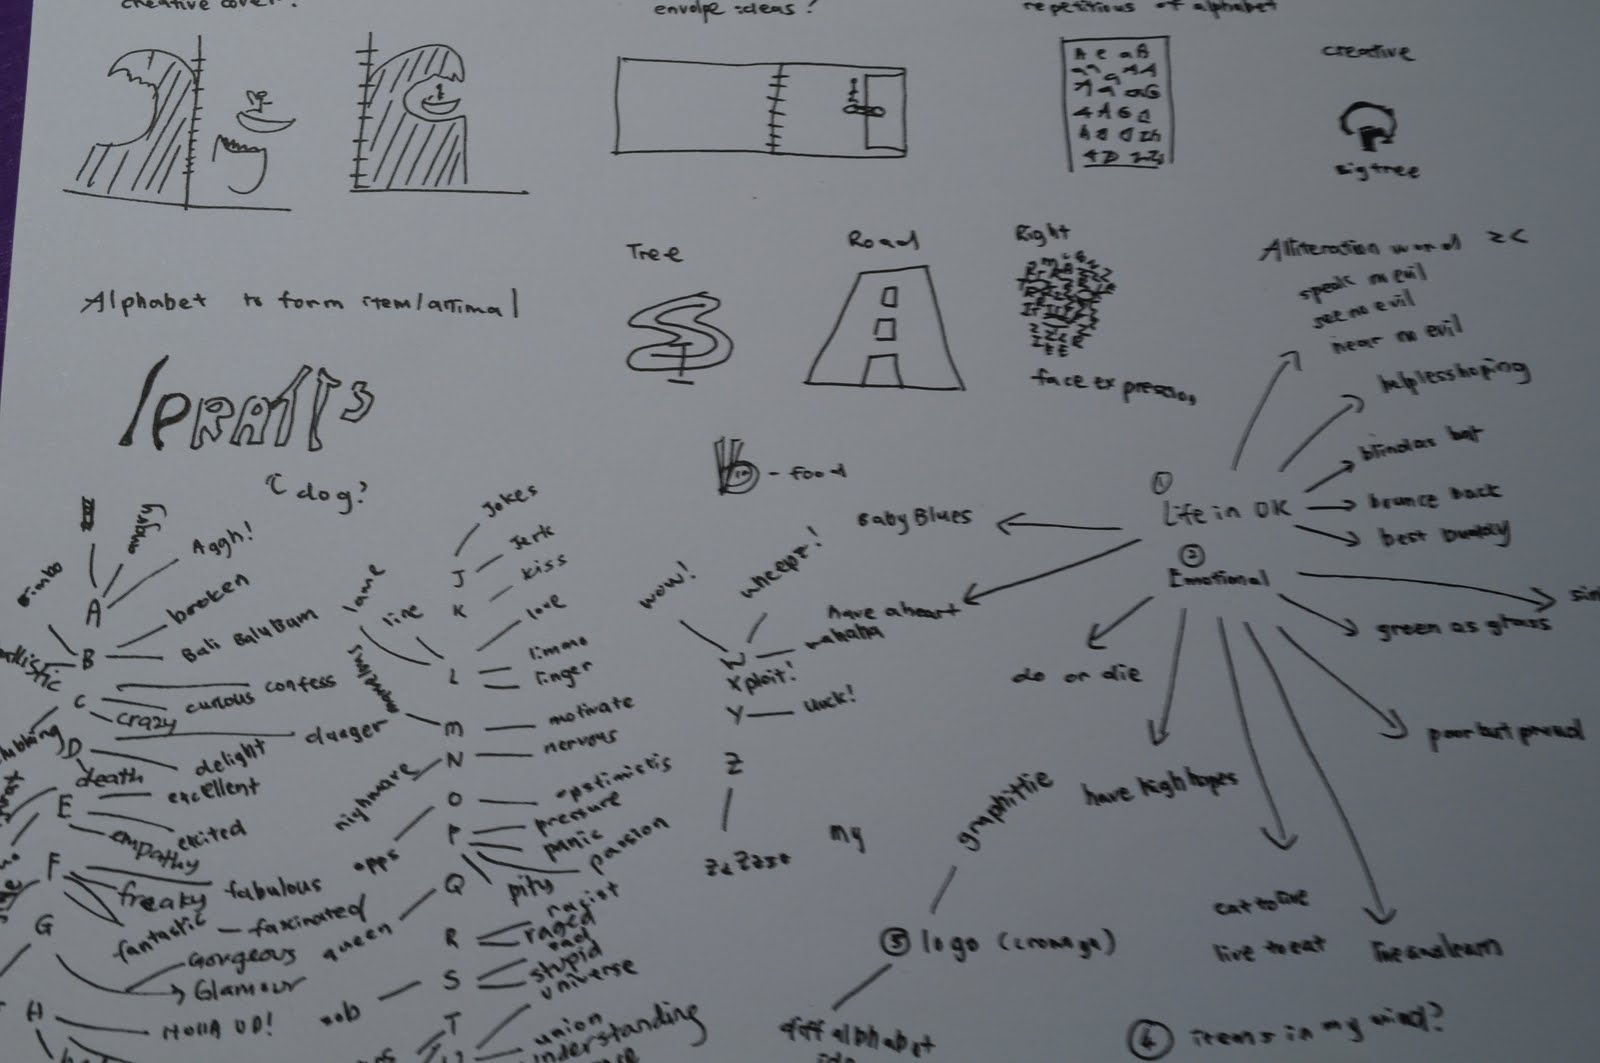 creative cover?
envolpe ideas?
repetitions of alphabet
A e a B
creative
Big tree
Tree
Road
Right
face expression
Alliteration word
speak no evil
see no evil
hear no evil
helpless hoping
blind as bat
bounce back
best buddy
Alphabet to form item/animal
dog?
b - food
① Life in OK
Baby Blues
have a heart
② Emotional
green as grass
do or die
poor but proud
have high hopes
eat to live
live to eat
live and learn
④ items in my mind?
⑤ logo (cronaga)
graphittie
diff alphabet
my
A
Aggh!
Bimbo
B
broken
Bali BaluBam
C
curious confess
crazy
D
danger
delight
death
E
excellent
excited
empathy
F
fabulous
freaky
fantastic - fascinated
G
Gorgeous
Glamour
H
HOLLA UP!
J
Jokes
Jerk
K
kiss
L
lame
line
love
limmo
linger
M
motivate
N
nervous
nighmare
O
opstimistis
opps
P
pressure
panic
passion
pity
Q
queen
R
racist
raged
S
sad
stupid
sob
T
universe
union
understanding
W
wow!
wheepz!
wahaha
xploit!
Y
Uuck!
Z
zzzzz